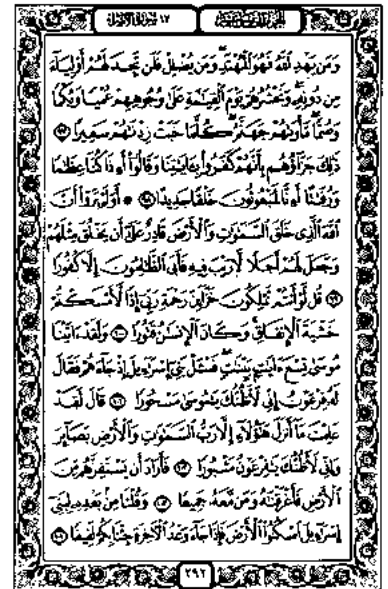 ١٧ سورة الإسراء
وَمَن يَهْدِ ٱللَّهُ فَهُوَ ٱلْمُهْتَدِ وَمَن يُضْلِلْ فَلَن تَجِدَ لَهُمْ أَوْلِيَآءَ
مِن دُونِهِۦ وَنَحْشُرُهُمْ يَوْمَ ٱلْقِيَٰمَةِ عَلَىٰ وُجُوهِهِمْ عُمْيًا وَبُكْمًا
وَصُمًّا مَّأْوَىٰهُمْ جَهَنَّمُ كُلَّمَا خَبَتْ زِدْنَٰهُمْ سَعِيرًا ٩٧
ذَٰلِكَ جَزَآؤُهُم بِأَنَّهُمْ كَفَرُوا۟ بِـَٔايَٰتِنَا وَقَالُوٓا۟ أَءِذَا كُنَّا عِظَٰمًا
وَرُفَٰتًا أَءِنَّا لَمَبْعُوثُونَ خَلْقًا جَدِيدًا ٩٨ ۞ أَوَلَمْ يَرَوْا۟ أَنَّ
ٱللَّهَ ٱلَّذِى خَلَقَ ٱلسَّمَٰوَٰتِ وَٱلْأَرْضَ قَادِرٌ عَلَىٰٓ أَن يَخْلُقَ مِثْلَهُمْ
وَجَعَلَ لَهُمْ أَجَلًا لَّا رَيْبَ فِيهِ فَأَبَى ٱلظَّٰلِمُونَ إِلَّا كُفُورًا
٩٩ قُل لَّوْ أَنتُمْ تَمْلِكُونَ خَزَآئِنَ رَحْمَةِ رَبِّىٓ إِذًا لَّأَمْسَكْتُمْ
خَشْيَةَ ٱلْإِنفَاقِ وَكَانَ ٱلْإِنسَٰنُ قَتُورًا ١٠٠ وَلَقَدْ ءَاتَيْنَا
مُوسَىٰ تِسْعَ ءَايَٰتٍۭ بَيِّنَٰتٍ فَسْـَٔلْ بَنِىٓ إِسْرَٰٓءِيلَ إِذْ جَآءَهُمْ فَقَالَ
لَهُۥ فِرْعَوْنُ إِنِّى لَأَظُنُّكَ يَٰمُوسَىٰ مَسْحُورًا ١٠١ قَالَ لَقَدْ
عَلِمْتَ مَآ أَنزَلَ هَٰٓؤُلَآءِ إِلَّا رَبُّ ٱلسَّمَٰوَٰتِ وَٱلْأَرْضِ بَصَآئِرَ
وَإِنِّى لَأَظُنُّكَ يَٰفِرْعَوْنُ مَثْبُورًا ١٠٢ فَأَرَادَ أَن يَسْتَفِزَّهُم مِّنَ
ٱلْأَرْضِ فَأَغْرَقْنَٰهُ وَمَن مَّعَهُۥ جَمِيعًا ١٠٣ وَقُلْنَا مِنۢ بَعْدِهِۦ لِبَنِىٓ
إِسْرَٰٓءِيلَ ٱسْكُنُوا۟ ٱلْأَرْضَ فَإِذَا جَآءَ وَعْدُ ٱلْءَاخِرَةِ جِئْنَا بِكُمْ لَفِيفًا ١٠٤
٢٩٢